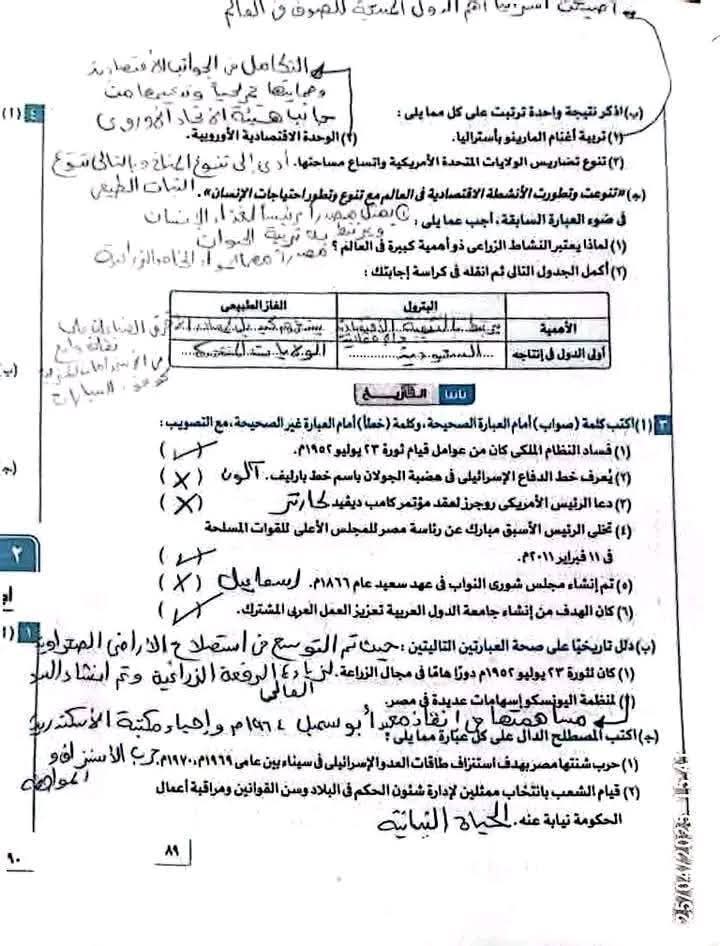 أصبحت استراليا أهم الدول المنتجة للصوف في العالم
التكامل في الجوانب الاقتصادية
وحمايتها جمركيا وتدعيمها من
جانب هيئة الاتحاد الأوروبي
(ب) اذكر نتيجة واحدة ترتبت على كل مما يلى :
(١) تربية أغنام المارينو بأستراليا.
(٢) الوحدة الاقتصادية الأوروبية.
(٣) تنوع تضاريس الولايات المتحدة الأمريكية واتساع مساحتها. أدى إلى تنوع المناخ وبالتالى تنوع
النبات الطبيعى
(ج) «تنوعت وتطورت الأنشطة الاقتصادية فى العالم مع تنوع وتطور احتياجات الإنسان».
فى ضوء العبارة السابقة، أجب عما يلى : ① يمثل مصدرا رئيسا لغذاء الإنسان
ويرتبط به تربية الحيوان
(١) لماذا يعتبر النشاط الزراعى ذو أهمية كبيرة فى العالم؟
(٢) أكمل الجدول التالى ثم انقله فى كراسة إجابتك :
البترول
الغاز الطبيعى
الأهمية
أولى الدول فى إنتاجه
السعودية
الولايات المتحدة
ثانيًا التاريخ
٣ (أ) اكتب كلمة (صواب) أمام العبارة الصحيحة، وكلمة (خطأ) أمام العبارة غير الصحيحة، مع التصويب :
(١) فساد النظام الملكى كان من عوامل قيام ثورة ٢٣ يوليو ١٩٥٢م. (✓)
(٢) يُعرف خط الدفاع الإسرائيلى فى هضبة الجولان باسم خط بارليف. آلون (X)
(٣) دعا الرئيس الأمريكى روجرز لعقد مؤتمر كامب ديفيد. كارتر (X)
(٤) تخلى الرئيس الأسبق مبارك عن رئاسة مصر للمجلس الأعلى للقوات المسلحة
فى ١١ فبراير ٢٠١١م. (✓)
(٥) تم إنشاء مجلس شورى النواب فى عهد سعيد عام ١٨٦٦م. إسماعيل (X)
(٦) كان الهدف من إنشاء جامعة الدول العربية تعزيز العمل العربى المشترك. (✓)
(ب) دلل تاريخيًا على صحة العبارتين التاليتين : حيث تم التوسع فى استصلاح الأراضى الصحراوية
(١) كان لثورة ٢٣ يوليو ١٩٥٢م دورًا هامًا فى مجال الزراعة. لزيادة الرقعة الزراعية وتم إنشاء السد
العالى
(٢) لمنظمة اليونسكو إسهامات عديدة فى مصر.
مساهمتها فى انقاذ معبد أبو سمبل ١٩٦٤م وإحياء مكتبة الأسكندرية
(ج) اكتب المصطلح الدال على كل عبارة مما يلى :
(١) حرب شنتها مصر بهدف استنزاف طاقات العدو الإسرائيلى فى سيناء بين عامى ١٩٦٩م، ١٩٧٠م. حرب الاستنزاف و
المواجهة
(٢) قيام الشعب بانتخاب ممثلين لإدارة شئون الحكم فى البلاد وسن القوانين ومراقبة أعمال
الحكومة نيابة عنه. الحياة النيابية
٨٩
٩٠